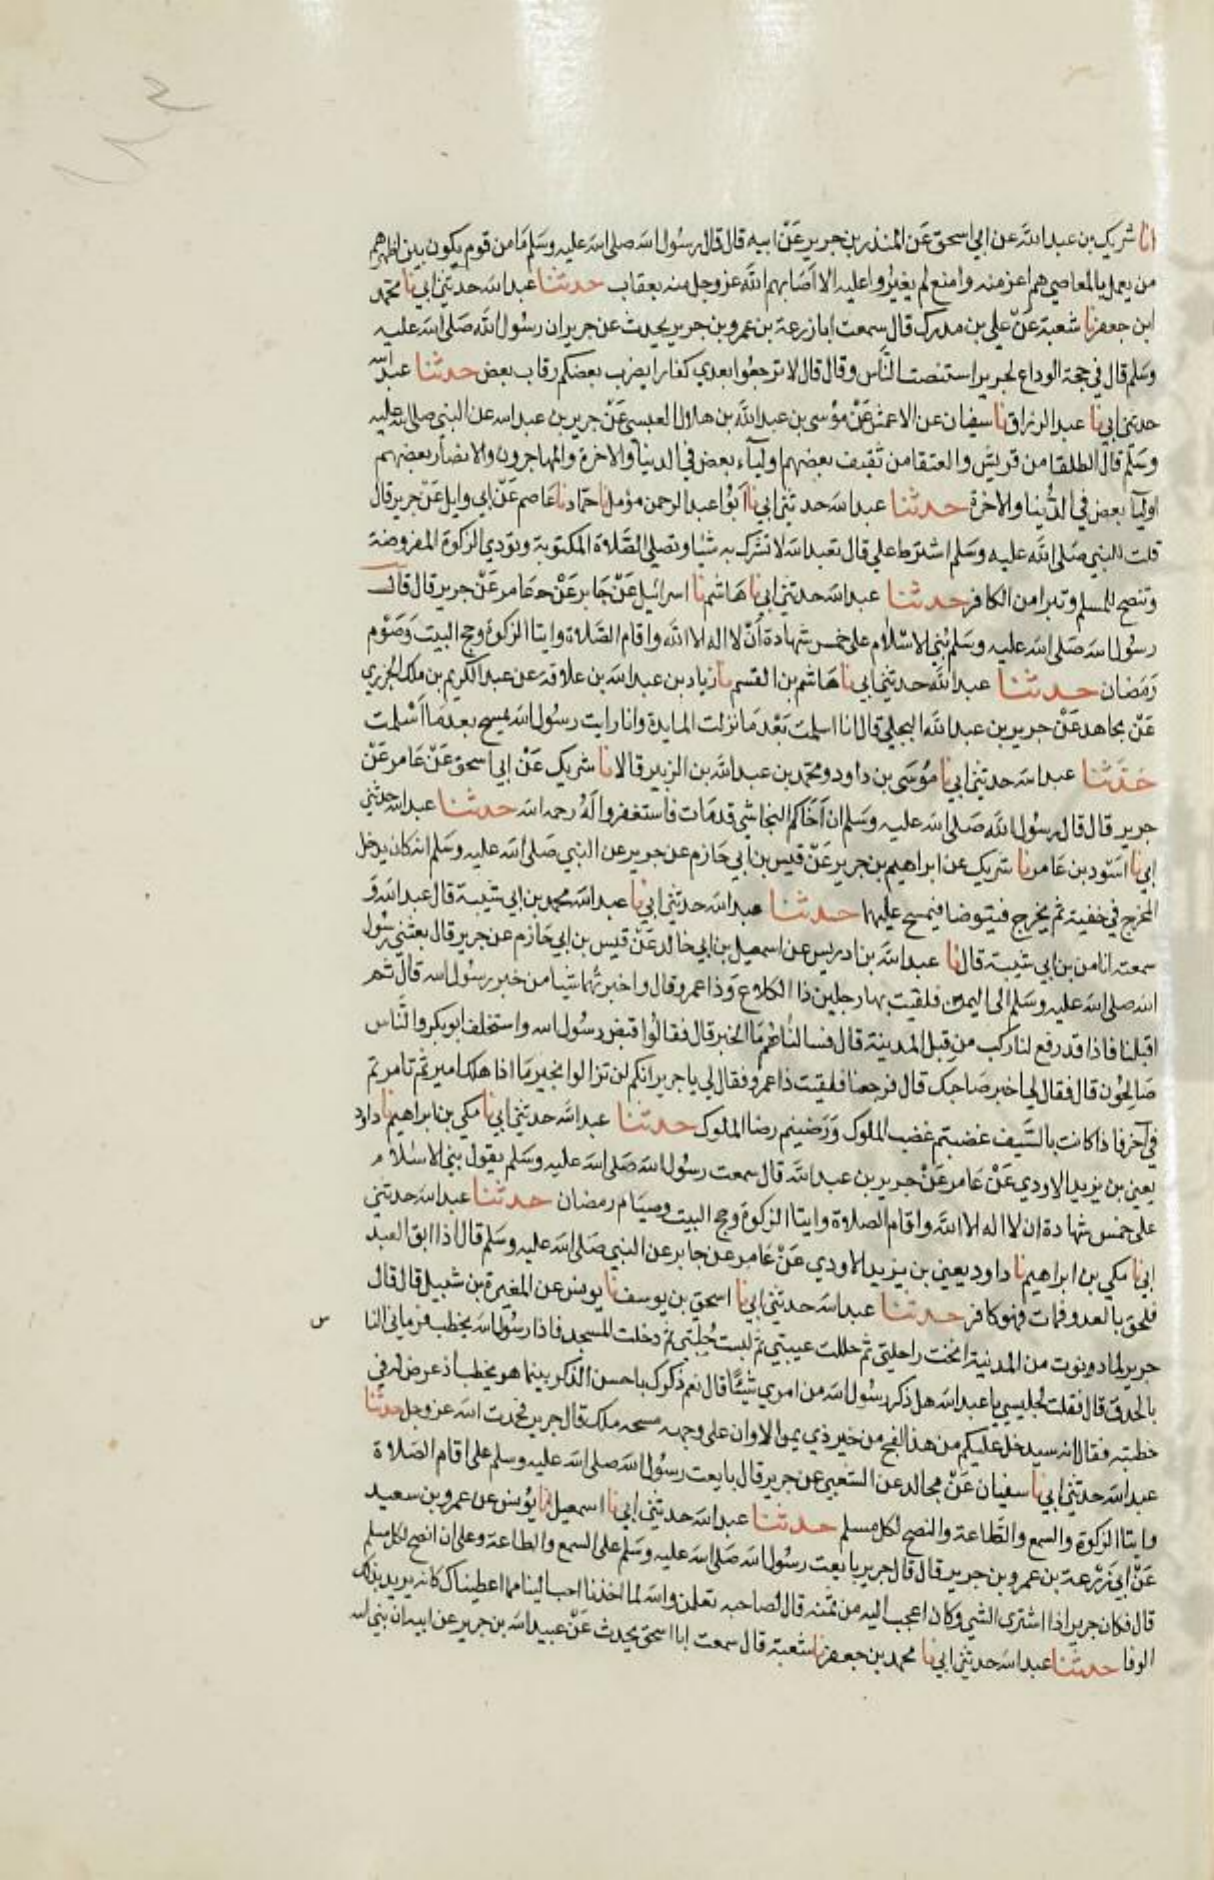 انا شريك بن عبد الله عن ابي اسحق عن المنذر بن جرير عن ابيه قال قال رسول الله صلى الله عليه وسلم ما من قوم يكون بين اظهرهم
من يعمل بالمعاصي هم اعز منه وامنع لم يغيروا عليه الا اصابهم الله عز وجل منه بعقاب حدثنا عبد الله حدثني ابي نا محمد
ابن جعفر نا شعبة عن علي بن مدرك قال سمعت ابا زرعة بن عمرو بن جرير يحدث عن جرير ان رسول الله صلى الله عليه
وسلم قال في حجة الوداع لجرير استنصت الناس وقال قال لا ترجعوا بعدي كفارا يضرب بعضكم رقاب بعض حدثنا عبد الله
حدثني ابي نا عبد الرزاق نا سفيان عن الاعمش عن موسى بن عبد الله بن هلال العبسي عن جرير بن عبد الله عن النبي صلى الله عليه
وسلم قال الطلقا من قريش والعتقا من ثقيف بعضهم اولياء بعض في الدنيا والاخرة والمهاجرون والانصار بعضهم
اوليا بعض في الدنيا والاخرة حدثنا عبد الله حدثني ابي نا ابو عبد الرحمن مؤمل نا حماد نا عاصم عن ابي وايل عن جرير قال
قلت للنبي صلى الله عليه وسلم اشترط علي قال تعبد الله لا تشرك به شيا وتصلي الصلاة المكتوبة وتودي الزكوة المفروضة
وتنصح المسلم وتبرا من الكافر حدثنا عبد الله حدثني ابي نا هاشم نا اسرائيل عن جابر عن عامر عن جرير قال قال
رسول الله صلى الله عليه وسلم بني الاسلام على خمس شهادة ان لا اله الا الله واقام الصلاة وايتا الزكوة وحج البيت وصوم
رمضان حدثنا عبد الله حدثني ابي نا هاشم بن القسم نا زياد بن عبد الله بن علاقة عن عبد الكريم بن ملك الجزري
عن مجاهد عن جرير بن عبد الله البجلي قال انا اسلمت بعد ما نزلت المايدة وانا رايت رسول الله يمسح بعد ما اسلمت
حدثنا عبد الله حدثني ابي نا موسى بن داود ومحمد بن عبد الله بن الزبير قالا نا شريك عن ابي اسحق عن عامر عن
جرير قال قال رسول الله صلى الله عليه وسلم ان اخاكم النجاشي قد مات فاستغفروا له رحمه الله حدثنا عبد الله حدثني
ابي نا اسود بن عامر نا شريك عن ابراهيم بن جرير عن قيس بن ابي حازم عن جرير عن النبي صلى الله عليه وسلم انه كان يدخل
المخرج في خفيه ثم يخرج فيتوضا فيمسح عليهما حدثنا عبد الله حدثني ابي نا عبد الله محمد بن ابي شيبة قال عبد الله و
سمعته انا من بن ابي شيبة قال نا عبد الله بن ادريس عن اسمعيل بن ابي خالد عن قيس بن ابي حازم عن جرير قال بعثني رسول
الله صلى الله عليه وسلم الى اليمن فلقيت بها رجلين ذا الكلاع وذا عمرو قال واخبرتهما شيا من خبر رسول الله قال ثم
اقبلنا فاذا قد رفع لنا ركب من قبل المدينة قال فسالناهم ما الخبر قال فقالوا قبض رسول الله واستخلف ابو بكر والناس
صالحون قال فقال لي اخبر صاحبك قال فرجعنا فلقيت ذا عمرو فقال لي يا جرير انكم لن تزالوا بخير ما اذا هلك امير ثم تامرتم
في آخر فاذا كانت بالسيف غضبتم غضب الملوك ورضيتم رضا الملوك حدثنا عبد الله حدثني ابي نا مكي بن ابراهيم نا داود
يعني بن يزيد الاودي عن عامر عن جرير بن عبد الله قال سمعت رسول الله صلى الله عليه وسلم يقول بني الاسلام
على خمس شهادة ان لا اله الا الله واقام الصلاة وايتا الزكوة وحج البيت وصيام رمضان حدثنا عبد الله حدثني
ابي نا مكي بن ابراهيم نا داود يعني بن يزيد الاودي عن عامر عن جابر عن النبي صلى الله عليه وسلم قال اذا ابق العبد
فلحق بالعدو فمات فهو كافر حدثنا عبد الله حدثني ابي نا اسحق بن يوسف نا يونس عن المغيرة بن شبيل قال قال
جرير لما دنوت من المدينة انخت راحلتي ثم حللت عيبتي ثم لبست حلتي ثم دخلت المسجد فاذا رسول الله يخطب فرماني النا س
بالحدق قال فقلت لجليسي يا عبد الله هل ذكر رسول الله من امري شيئا قال نعم ذكرك باحسن الذكر بينما هو يخطب اذ عرض له في
خطبته فقال انه سيدخل عليكم من هذا الفج من خير ذي يمن الا وان على وجهه مسحه ملك قال جرير فحمدت الله عز وجل حدثنا
عبد الله حدثني ابي نا سفيان عن مجالد عن الشعبي عن جرير قال بايعت رسول الله صلى الله عليه وسلم على اقام الصلاة
وايتا الزكوة والسمع والطاعة والنصح لكل مسلم حدثنا عبد الله حدثني ابي نا اسمعيل انا يونس عن عمرو بن سعيد
عن ابي زرعة بن عمرو بن جرير قال قال جرير بايعت رسول الله صلى الله عليه وسلم على السمع والطاعة وعلى ان انصح لكل مسلم
قال فكان جرير اذا اشترى الشي وكان اعجب اليه من ثمنه قال لصاحبه تعلمن والله لما اخذنا احب الينا مما اعطيناك كانه يريد بذلك
الوفا حدثنا عبد الله حدثني ابي نا محمد بن جعفر نا شعبة قال سمعت ابا اسحق يحدث عن عبيد الله بن جرير عن ابيه ان نبي الله